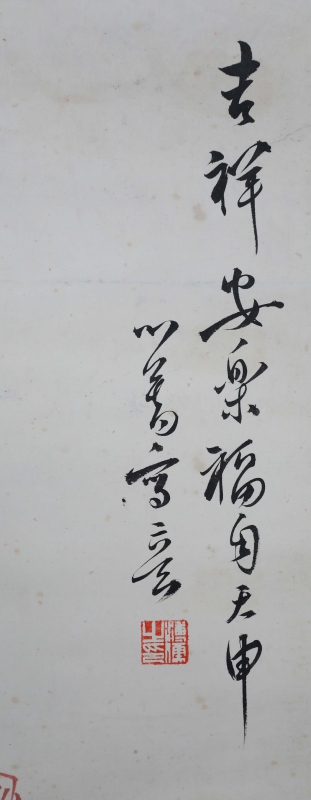 吉祥安樂福自天申
心畬寫
溥儒之印